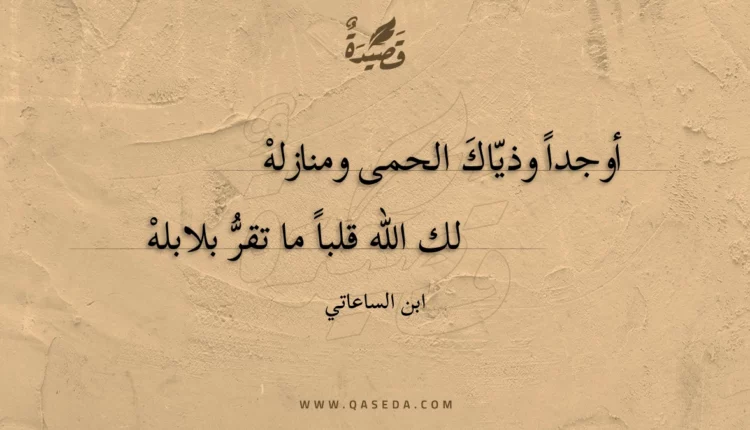 قَصِيدَةٌ
أوجداً وذيّاكَ الحمى ومنازلهْ
لك الله قلباً ما تقرُّ بلابلهْ
ابن الساعاتي
WWW.QASEDA.COM